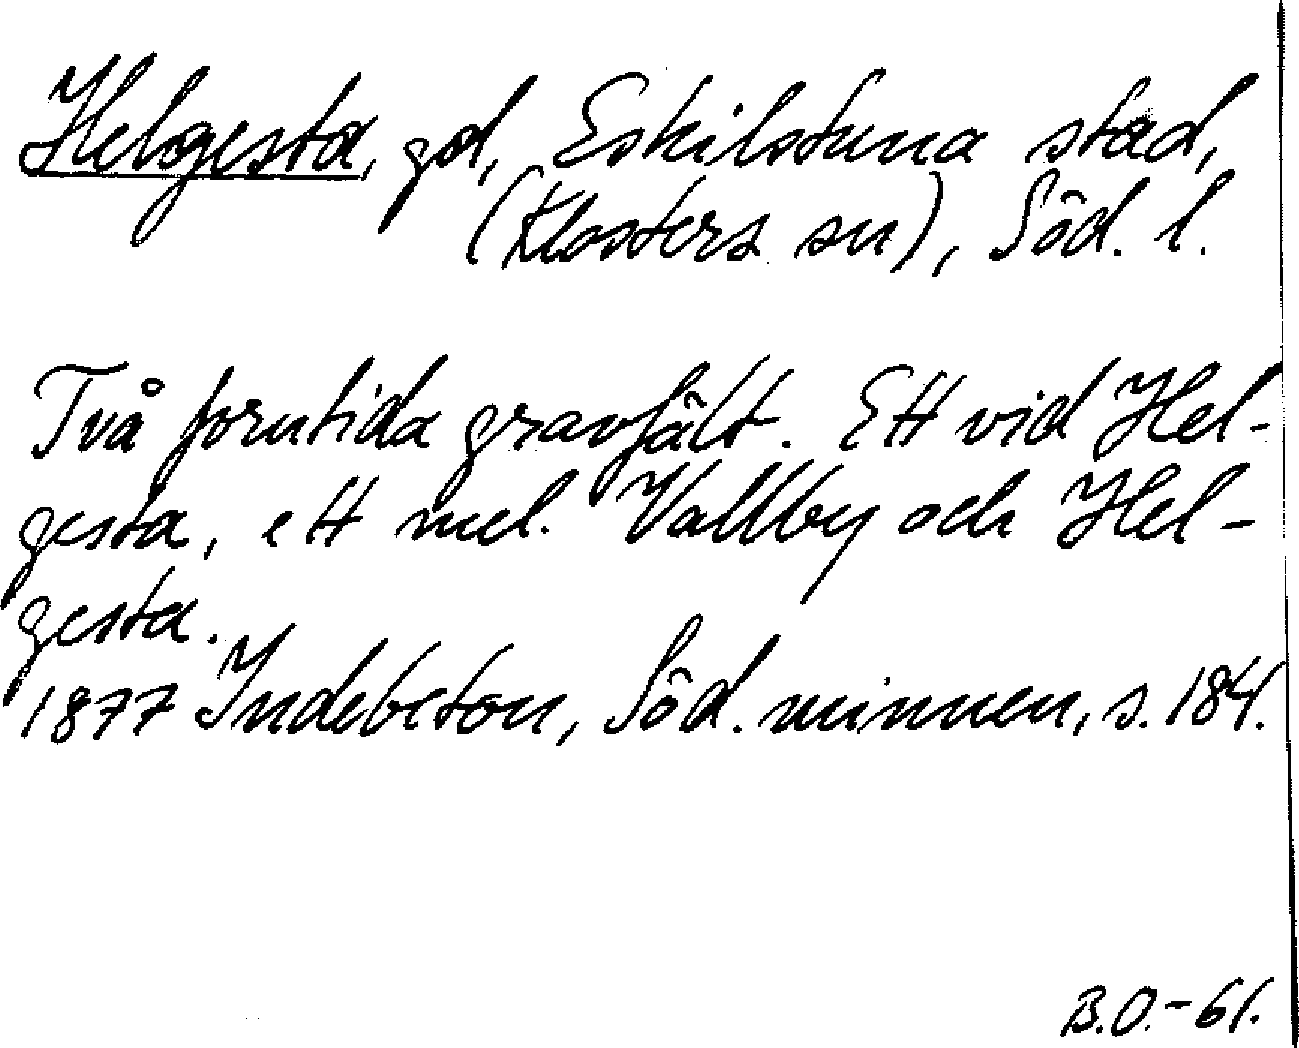 Helgesta, gd, Eskilstuna stad,
(Klosters sn), Söd. l.
Två forntida gravfält. Ett vid Hel-
gesta, ett mel. Vallby och Hel-
gesta.
1877 Indebetou, Söd. minnen, s. 184.
B.O.-61.